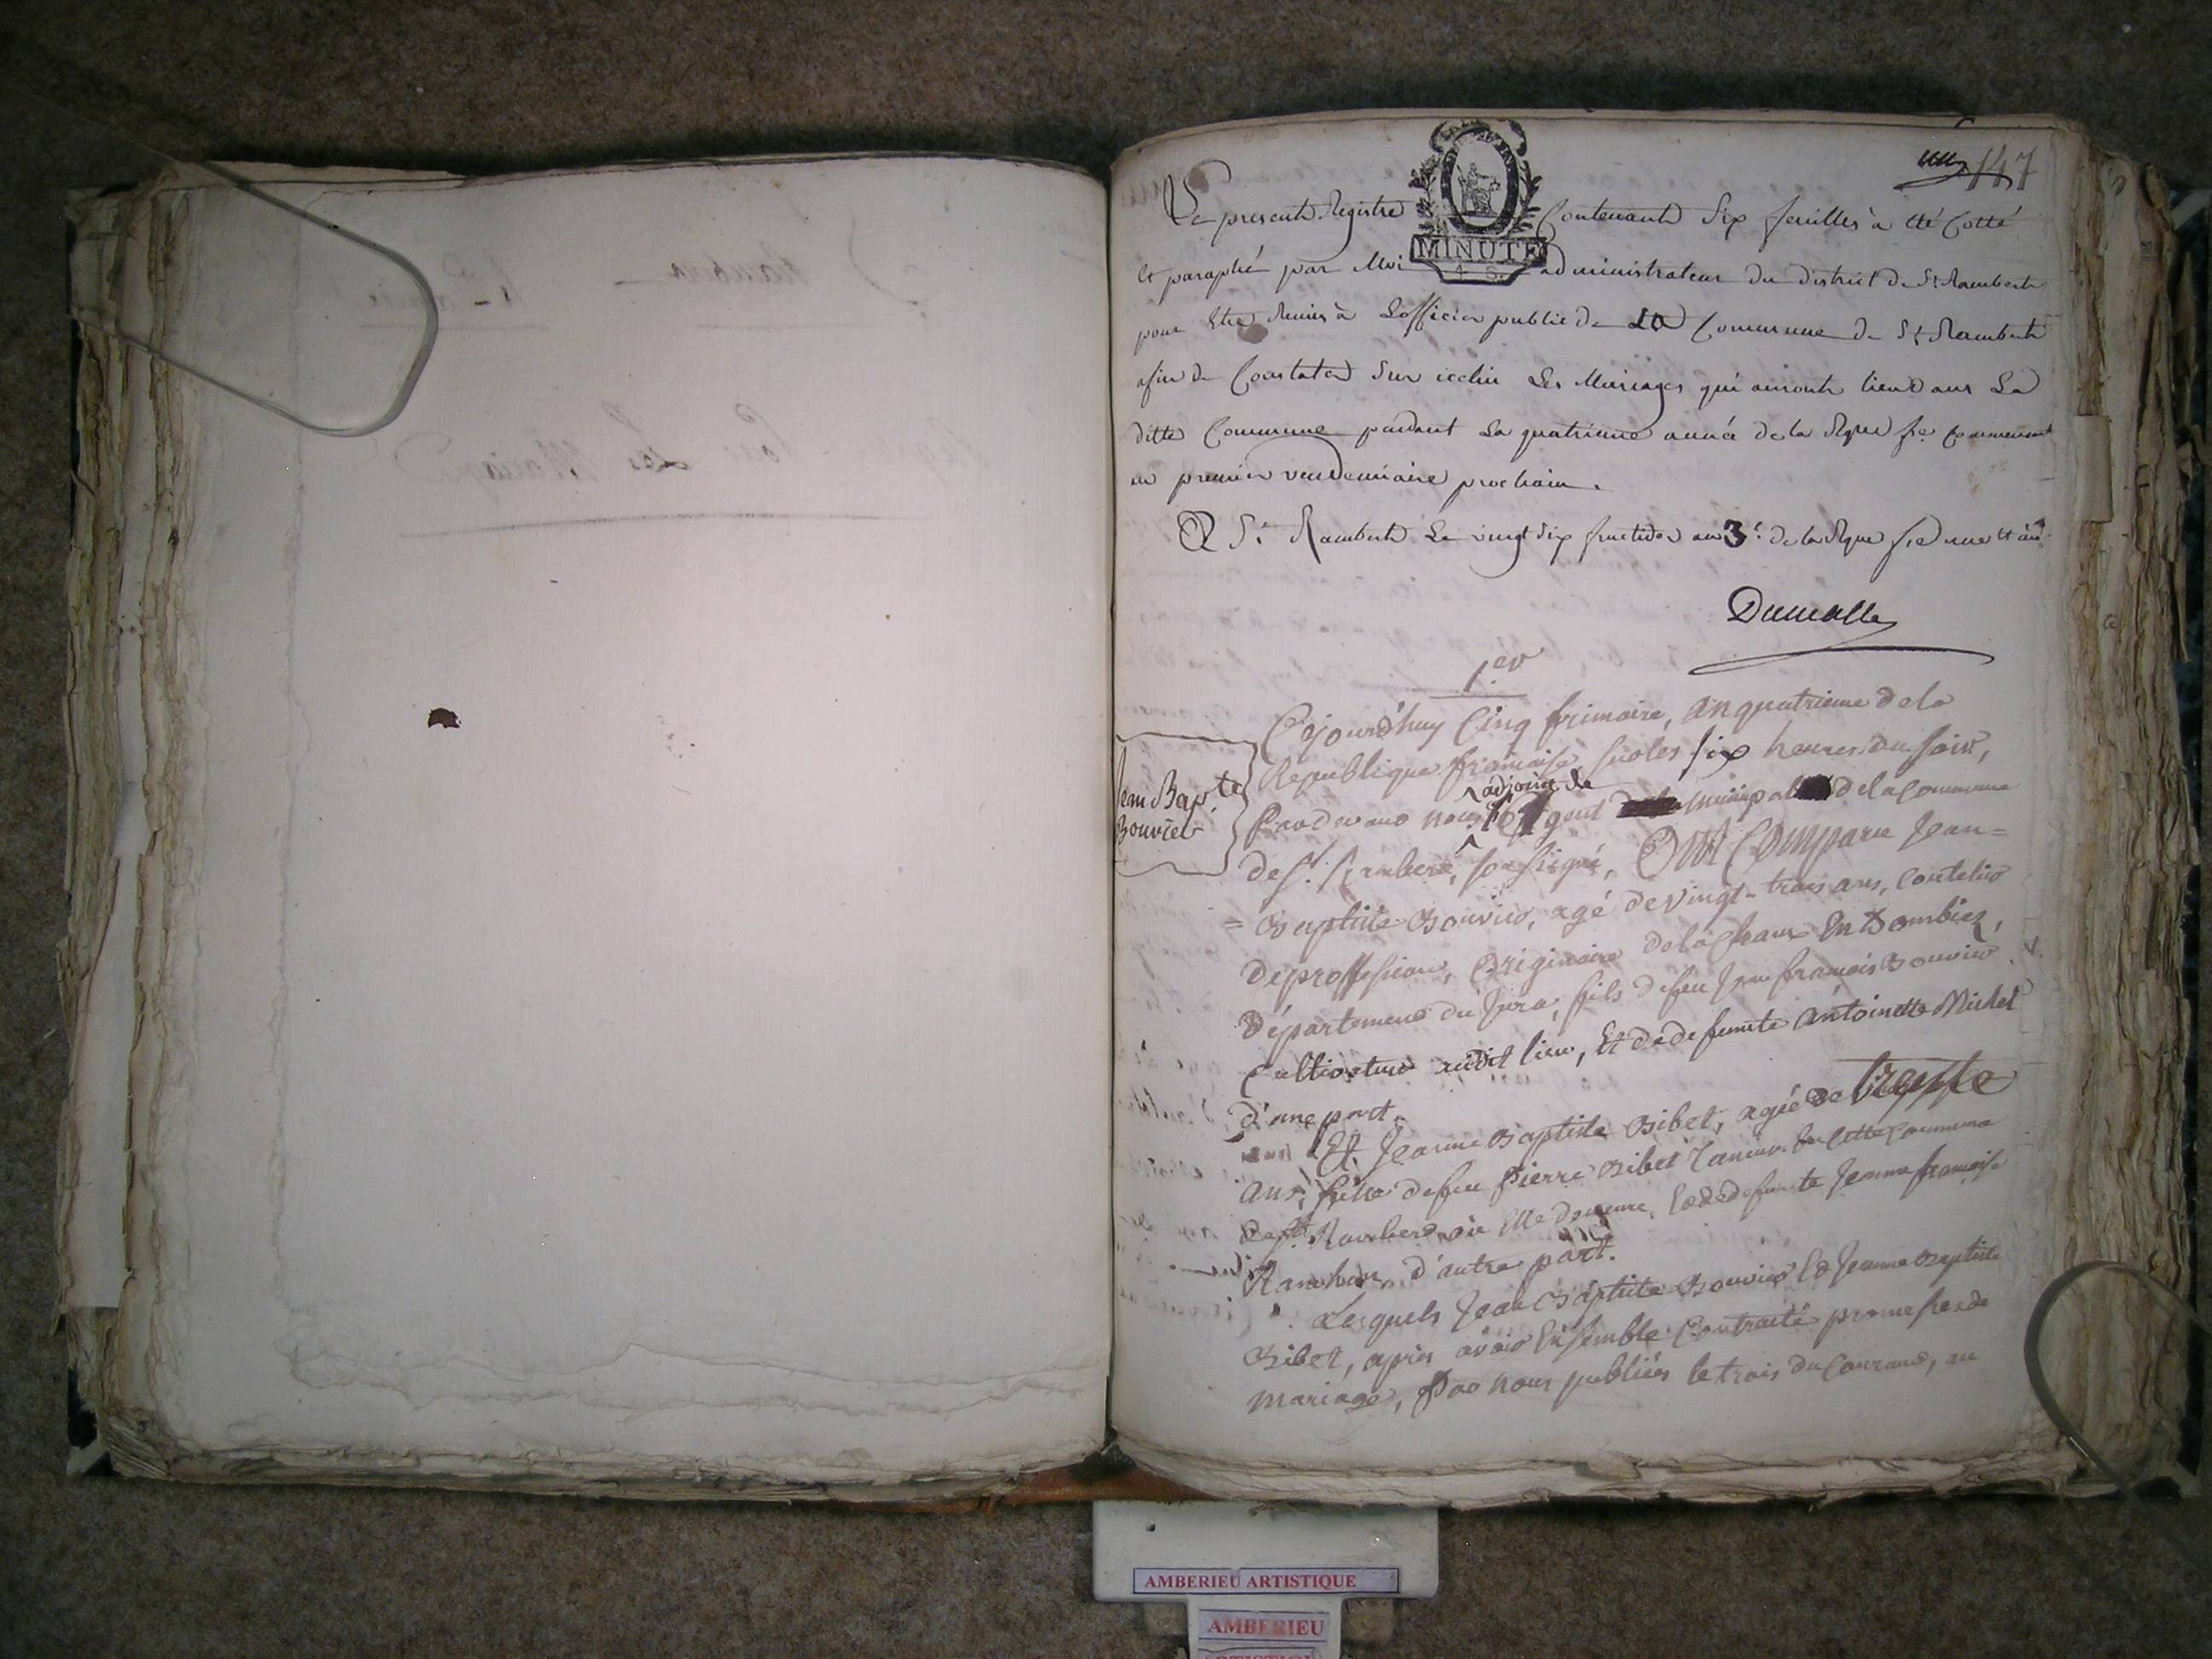 147
Le present Registre Contenant Six feuilles à été Cotté
MINUTE
4 S.
et paraphé par Moi administrateur du district de St Rambert
pour Etre Remis à L'officier public de La Commune de St Rambert
afin de Constater Sur icelui Les Mariages qui auront lieu dans La
ditte Commune pendant La quatrieme année de la Repue fse Commencant
au premier vendemiaire prochain.
A St Rambert Le vingt Six fructidor an 3e de la Repue fse une et
Dumolle
1.er
Cejourd'huy Cinq frimaire, an quatrieme de la
Republique françoise, sur les six heures du soir,
Jean Bap.te
Bouvier
adjoint de
Pardevant nous l'Agent municipal de la Commune
de St. Rambert, soussigné, Ont Comparu Jean=
=Baptiste Bouvier, agé de vingt-trois ans, Coutelier
de proffession, Originaire de la Chaux En Bombiez,
Département du Jura, fils de feu Jean françois Bouvier
Cultivateur audit lieu, Et de defunte Antoinette Michel
d'une part.
Et Jeanne Baptiste Bibet, agée de trente
ans, fille de feu Pierre Bibet Taneur En cette Commune
de St. Rambert, où Elle demeure, Et de defunte Jeanne françoise
d'autre part.
Lesquels Jean Baptiste Bouvier Et Jeanne Baptiste
Bibet, après avoir Ensemble Contracté promesses de
mariage, Par nous publiées le trois du Courant, au
AMBERIEU ARTISTIQUE
AMBERIEU
ARTISTIQUE